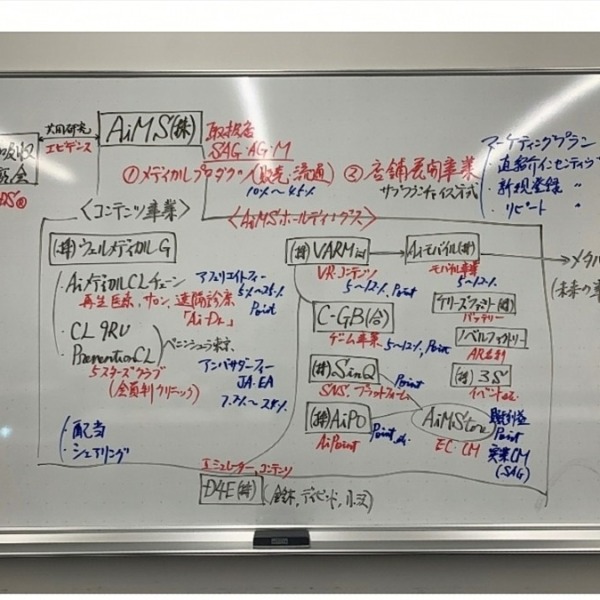 共同研究
エビデンス
AiMS(株)
取扱店
SAG・AG・M
①メディカルプロダクツ(販売・流通)
10%〜45%
②店舗展開事業
サブフランチャイズ方式
マーケティングプラン
・直紹介インセンティブ
・新規登録 〃
・リピート 〃
<コンテンツ事業>
<AiMSホールディングス>
(株)ウェルメディカルG
・AiメディカルCLチェーン
再生医療、サロン、遠隔診療
「Ai-Dr.」
アフィリエイトフィー
5%〜25%
Point
・CL 9RU
PreventionCL
5スターズクラブ
(会員制クリニック)
アンバサダーフィー
JA・EA
・配当
・シェアリング
(株)VARM
VRコンテンツ
5〜12%, Point
Aiモバイル(株)
モバイル事業
5〜12%
C-GB(合)
ゲーム事業
5〜12%, Point
バッテリー
ノベルファクトリー
AR名刺
(株)SinQ
SNS, プラットフォーム
Point
(株)3S
イベント
(株)AiPO
AiPoint
Point
AiMStore
EC・CM
Point
実業CM
(SAG)
エミュレーター、コンテンツ
D4E(株)
メタバ
(未来の事